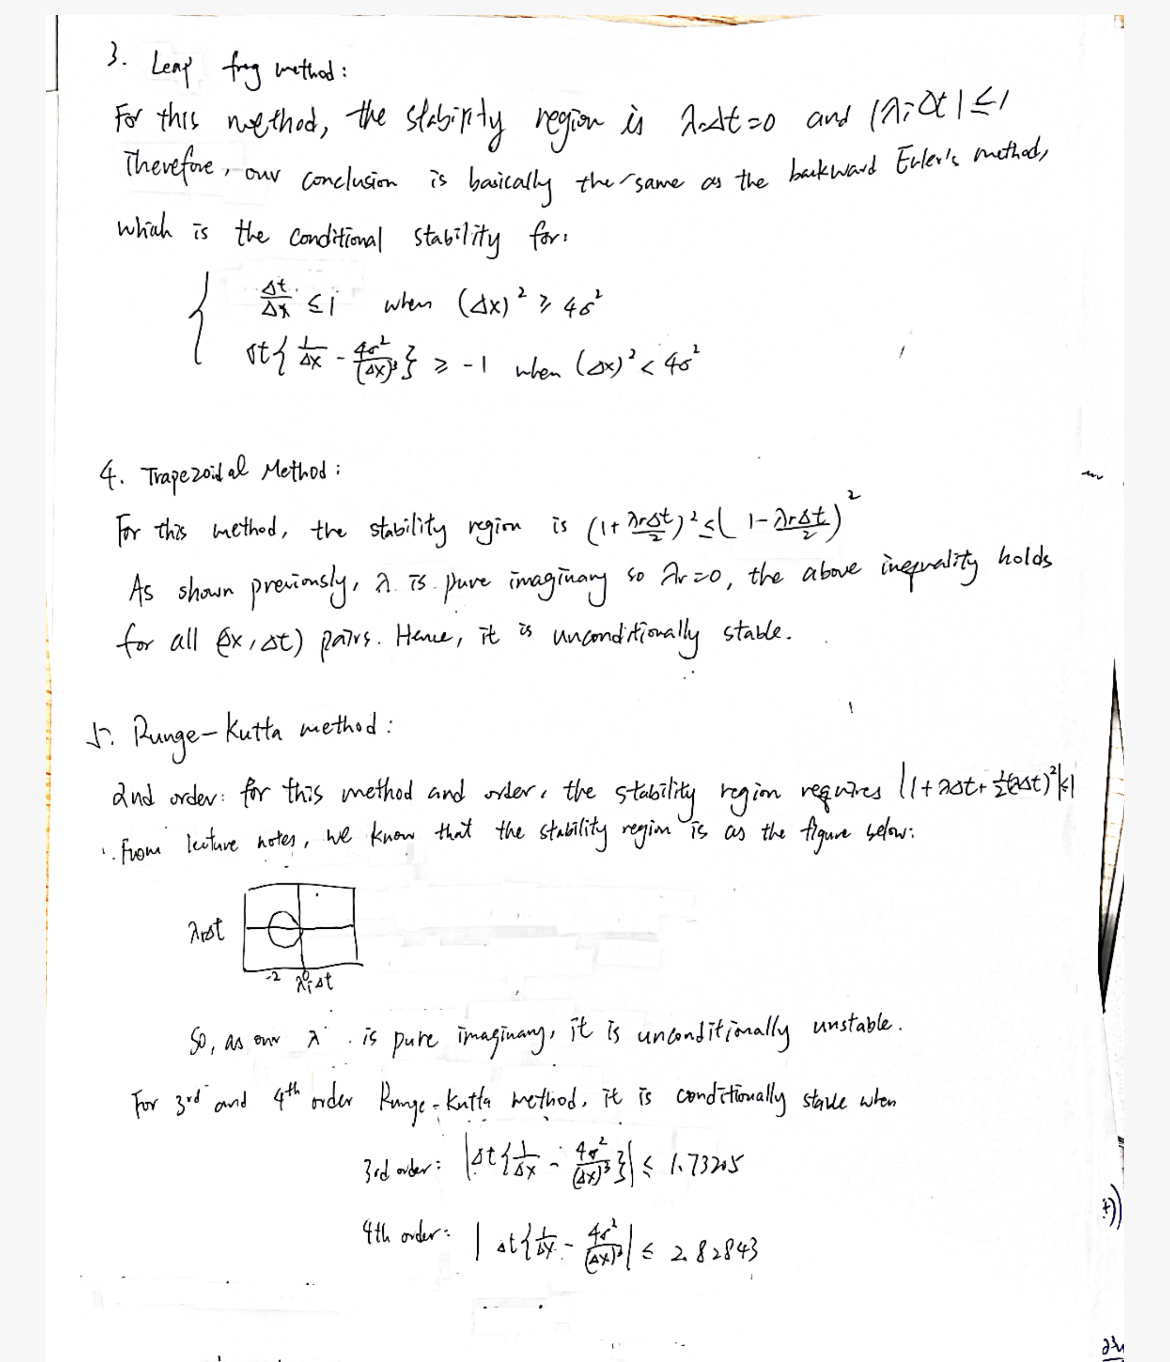 3. Leap frog method:
For this method, the stability region is λrΔt=0 and |λiΔt|≤1
Therefore, our conclusion is basically the same as the backward Euler's method,
which is the conditional stability for:
{ Δt/Δx ≤ 1 when (Δx)² ≥ 4σ²
Δt{1/Δx - 4σ²/(Δx)³} ≥ -1 when (Δx)² < 4σ²
4. Trapezoidal Method:
For this method, the stability region is (1+ λrΔt/2)² ≤ (1- λrΔt/2)²
As shown previously, λ is pure imaginary so λr=0, the above inequality holds
for all (Δx, Δt) pairs. Hence, it is unconditionally stable.
5. Runge-Kutta method:
2nd order: for this method and order, the stability region requires |1+λΔt+½(λΔt)²|≤1
From lecture notes, we know that the stability region is as the figure below:
λrΔt
-2 0
λiΔt
So, as our λ is pure imaginary, it is unconditionally unstable.
For 3rd and 4th order Runge-Kutta method, it is conditionally stable when
3rd order: |Δt{1/Δx - 4σ²/(Δx)³}| ≤ 1.73205
4th order: |Δt{1/Δx - 4σ²/(Δx)³| ≤ 2.82843